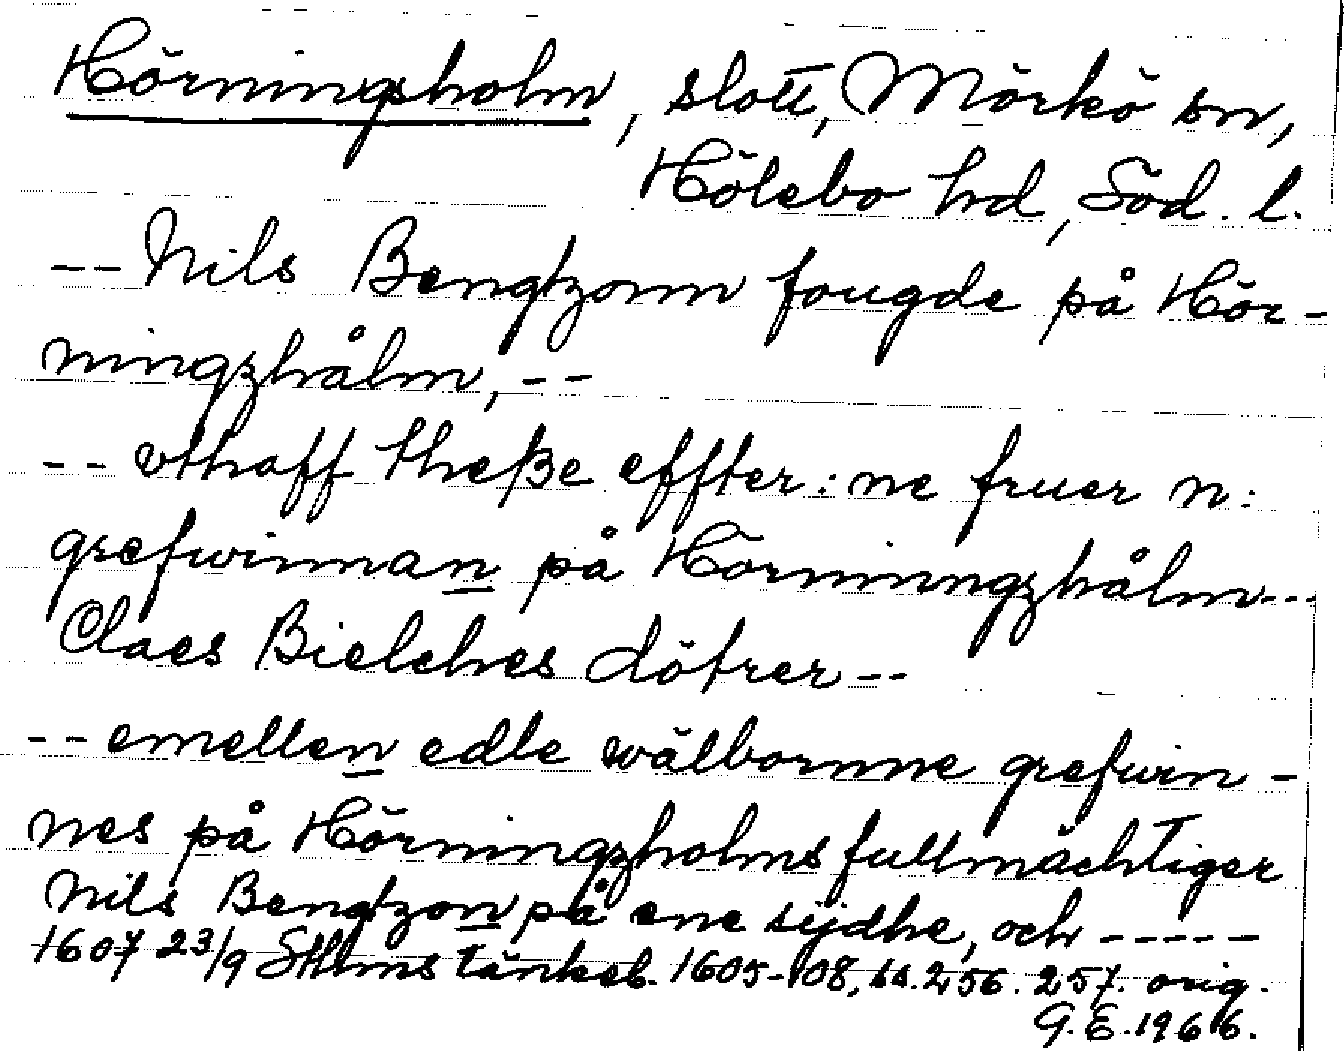 Hörningsholm, slott, Mörkö sn,
Hölebo hd, Söd. l.
-- Nils Bengtzonn fougde på Hör-
ningzhålm, --
-- vthaff theße effter: ne fruer n:
grefwinnan på Hörnningzhålm---
Claes Bielches dötrer --
-- emellen edle wälbornne grefwin-
nes på Hörningzholms fullmächtiger
Nils Bengtzon på ene sijdhe, och -----
1607 23/9 Sthms tänkeb. 1605-08, ss. 256. 257. orig.
G.E. 1966.